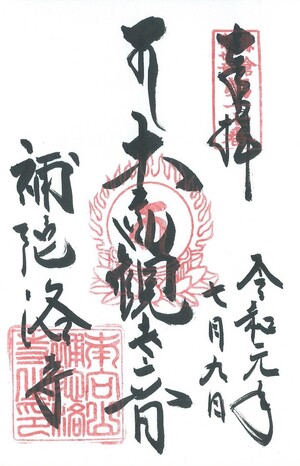 奉拝
令和元年
七月九日
十一面観世音
補陀洛寺
南向山
補陀洛
寺之印